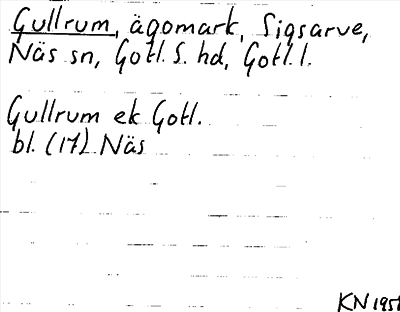 Gullrum, ägomark, Sigsarve,
Näs sn, Gotl. S. hd, Gotl. l.
Gullrum ek Gotl.
bl. (17) Näs
KN 1951